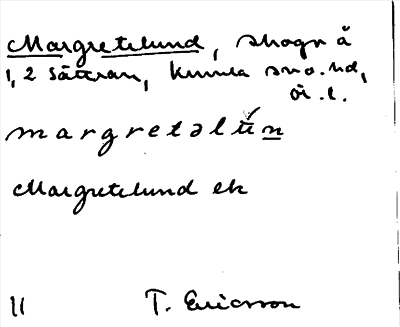 Margretelund, skogv å
1,2 Sättran, Kumla sn o. hd,
Ör. l.
margretəlun
Margretelund ek
11 T. Ericsson